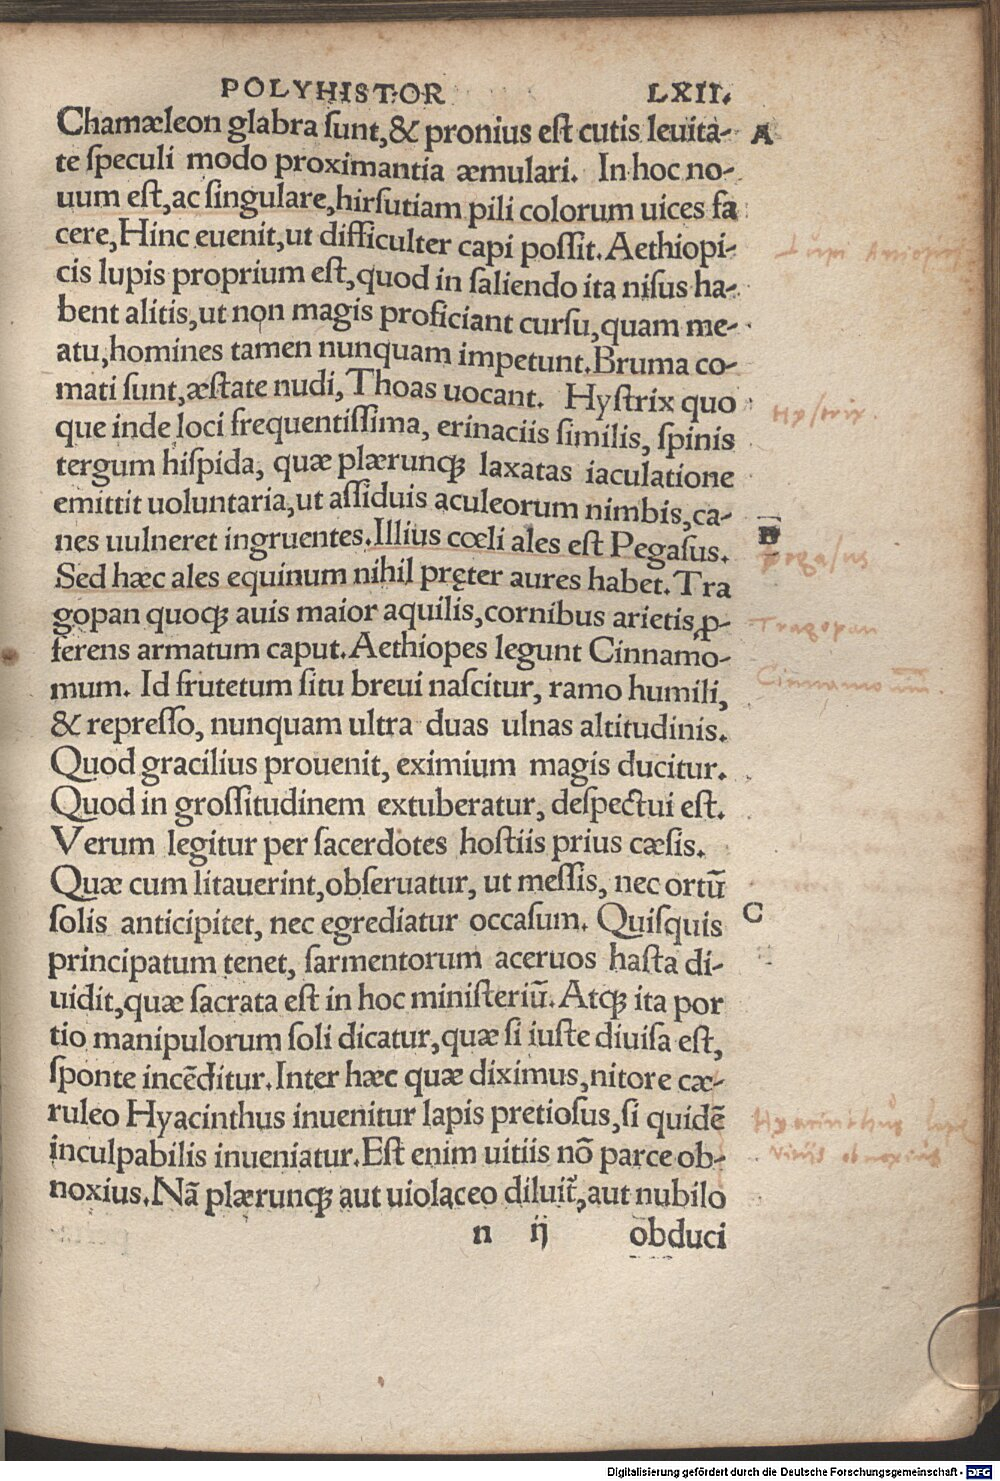 POLYHISTOR LXII.
Chamæleon glabra ſunt,& pronius eſt cutis leuita- A
te ſpeculi modo proximantia æmulari. In hoc no-
uum eſt,ac ſingulare,hirſutiam pili colorum uices fa
cere,Hinc euenit,ut difficulter capi poſſit.Aethiopi-
cis lupis proprium eſt,quod in ſaliendo ita niſus ha-
bent alitis,ut non magis proficiant curſu,quam me-
atu,homines tamen nunquam impetunt.Bruma co-
mati ſunt,æſtate nudi,Thoas uocant. Hyſtrix quo
Hyſtrix.
que inde loci frequentiſſima, erinaciis ſimilis, ſpinis
tergum hiſpida, quæ plærunqꝫ laxatas iaculatione
emittit uoluntaria,ut aſſiduis aculeorum nimbis,ca-
nes uulneret ingruentes.Illius cœli ales eſt Pegaſus. B
Pegaſus
Sed hæc ales equinum nihil pręter aures habet.Tra
gopan quoqꝫ auis maior aquilis,cornibus arietis,ꝓ-
Tragopan
ferens armatum caput.Aethiopes legunt Cinnamo-
mum. Id frutetum ſitu breui naſcitur, ramo humili,
& repreſſo, nunquam ultra duas ulnas altitudinis.
Quod gracilius prouenit, eximium magis ducitur.
Quod in groſſitudinem extuberatur, deſpectui eſt.
Verum legitur per ſacerdotes hoſtiis prius cæſis.
Quæ cum litauerint,obſeruatur, ut meſſis, nec ortū
ſolis anticipitet, nec egrediatur occaſum. Quiſquis C
principatum tenet, ſarmentorum aceruos haſta di-
uidit,quæ ſacrata eſt in hoc miniſteriū.Atqꝫ ita por
tio manipulorum ſoli dicatur,quæ ſi iuſte diuiſa eſt,
ſponte incēditur.Inter hæc quæ diximus,nitore cæ-
ruleo Hyacinthus inuenitur lapis pretioſus,ſi quidē
Hyacinthus
inculpabilis inueniatur.Eſt enim uitiis nō parce ob-
vitiis obnoxius
noxius.Nā plærunqꝫ aut uiolaceo diluit᷑,aut nubilo
n ij obduci
Digitalisierung gefördert durch die Deutsche Forschungsgemeinschaft - DFG